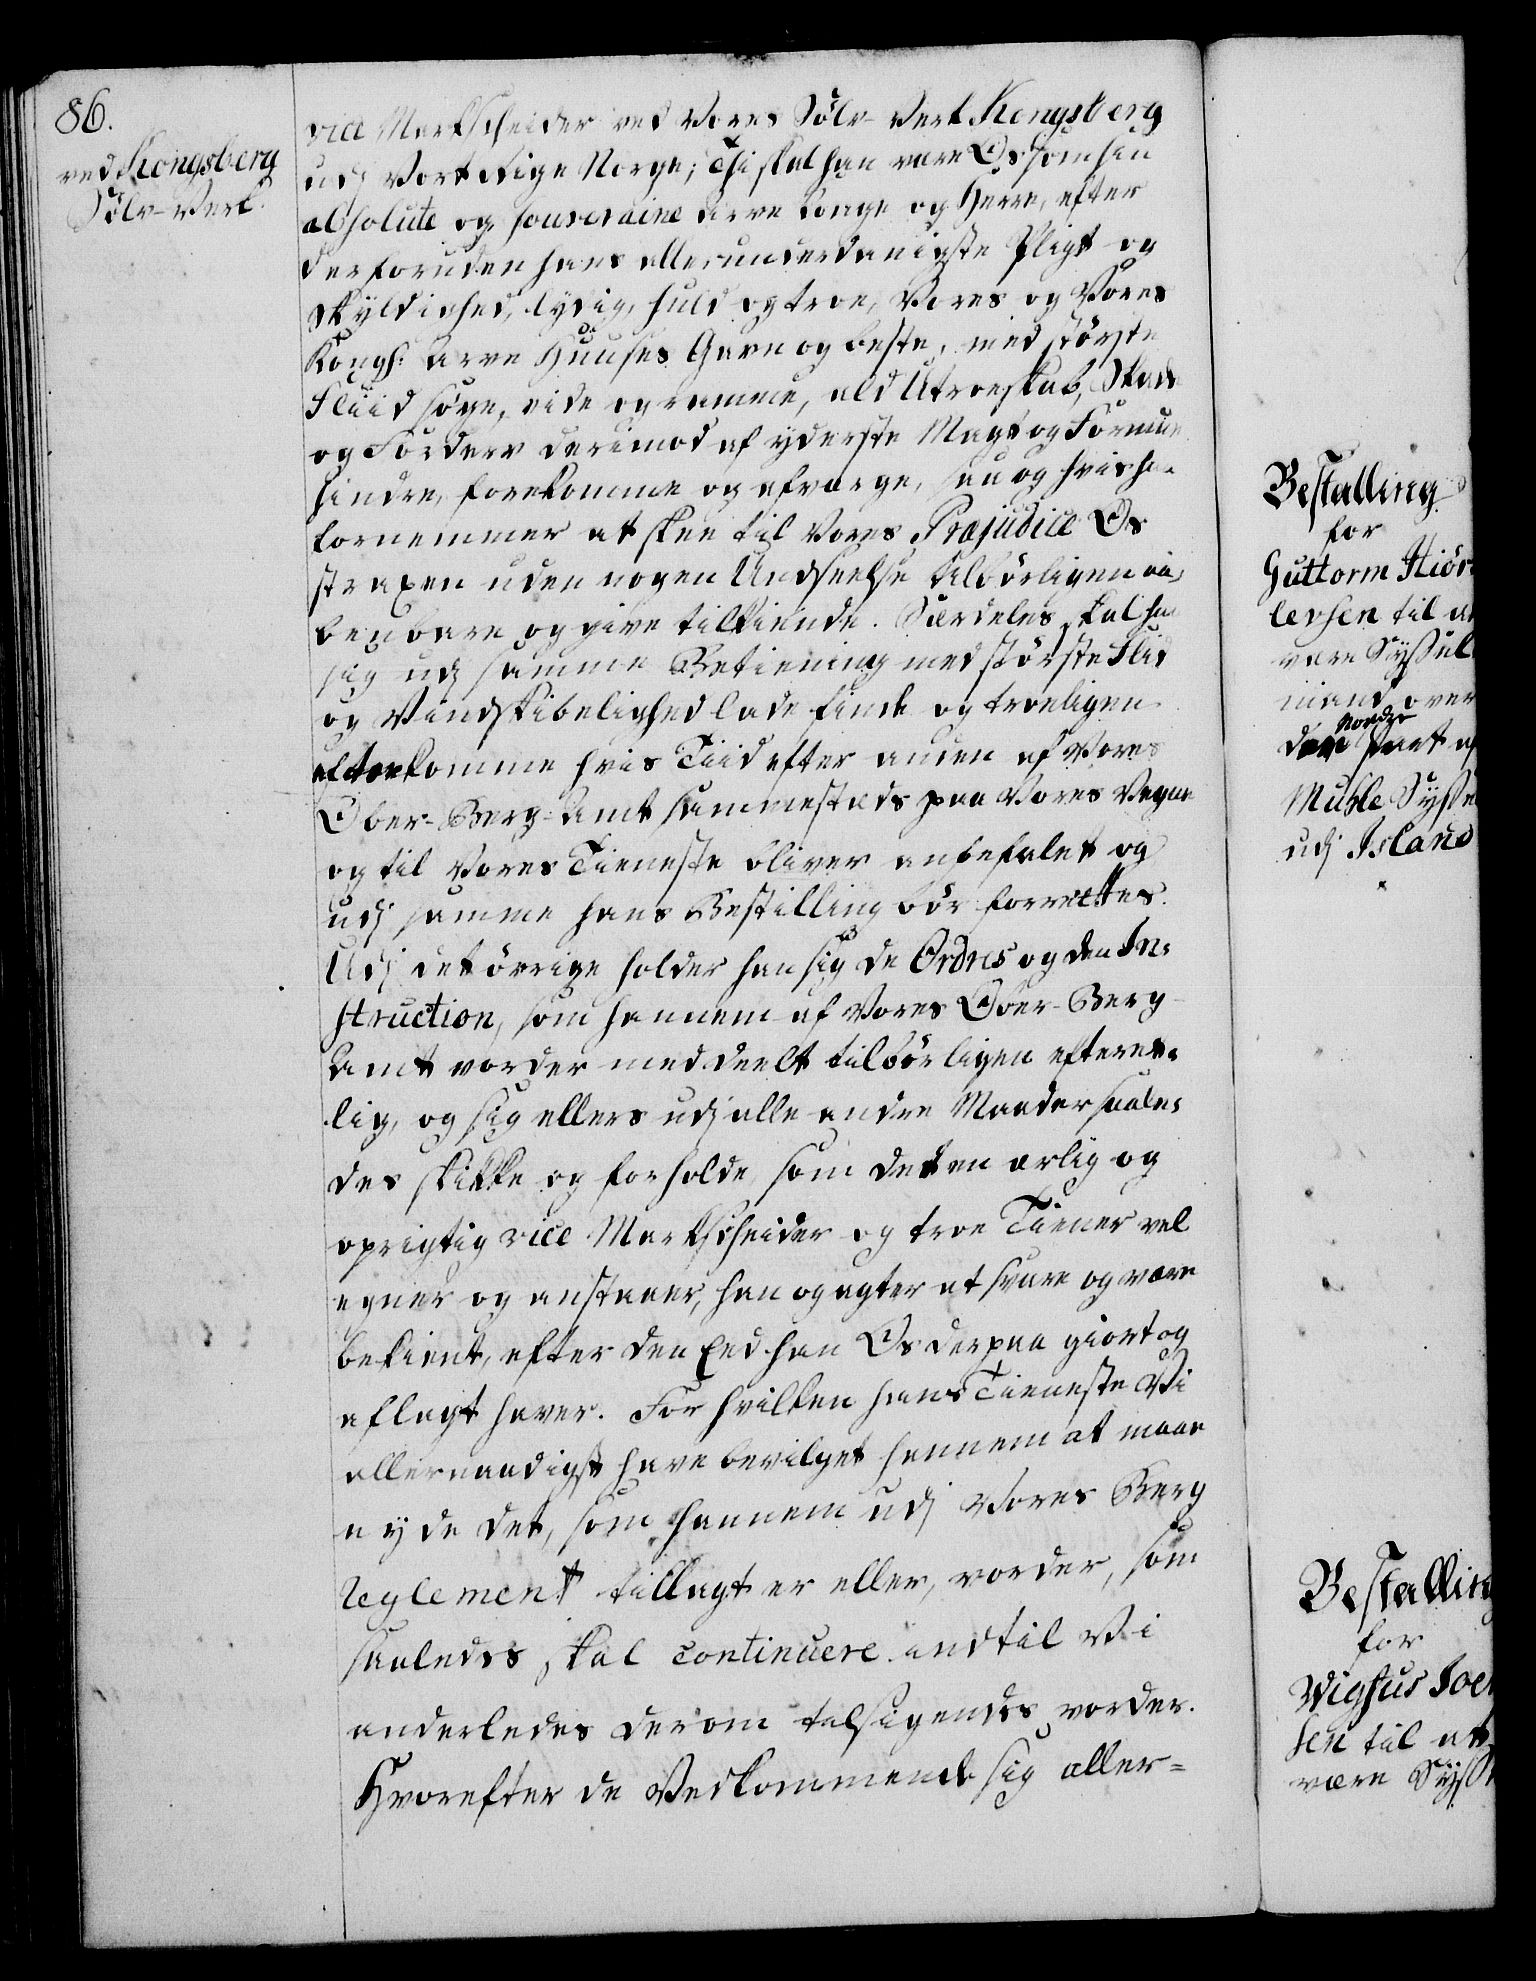 86.
ved Kongsberg
Sölv-Verk.
vice Markscheider ved Vores Sölv-Verk Kongsberg
udj Vort Rige Norge; Thi skal han være Os som sin
absolute og souveraine Arve Konge og Herre, efter
derforuden hans allerunderdanigste Pligt og
Skyldighed, lydig, huld og troe, Vores og Vores
Kongl: Arve Huuses Gavn og beste, med störste
Fliid söge, vide og ramme, ald Utroeskab, Skade
og Forderv derimod af yderste Magt og Formue
hindre, forekomme og afværge, saa og hvis han
fornemmer at skee til Vores Præjudice Os
straxen uden nogen Undseelse tilbörligen aa-
benbare og give tilkiende. Særdeles skal han
sig udj samme Betiening med störste Flid
og Vindskibelighed lade finde og troeligen
efterkomme hvis Tiid efter anden af Vores
Ober-Berg-Amt sammesteds paa Vores Vegne
og til Vores Tieneste bliver anbefalet og
udj samme hans Bestilling bör forrettes.
Udj det övrige holder han sig de Ordres og den In-
struction, som hannem af Vores Ober-Berg-
Amt vorder meddeelt tilbörligen efterret-
lig, og sig ellers udj alle andre Maader saale-
des skikke og forholde, som det en ærlig og
oprigtig vice Markscheider og troe Tiener vel
egner og anstaaer, han og agter at svare og være
bekient, efter den Eed han Os derpaa giort og
aflagt haver. For hvilken hans Tieneste Vi
allernaadigst have bevilget hannem at maae
nyde det, som hannem udj Vores Berg
Reglement tillagt er eller, vorder, som
saaledes skal continuere indtil Vi
anderledes derom tilsigendes vorder.
Hvorefter de Vedkommende sig aller-
Bestalling
for
Guttorm Hiör
levsen til at
være Syssel
mand over
den Nordre Part af
Muhle Sysse
udj Island
Bestalling
for
Wigfus Joen
sen til at
være Syss